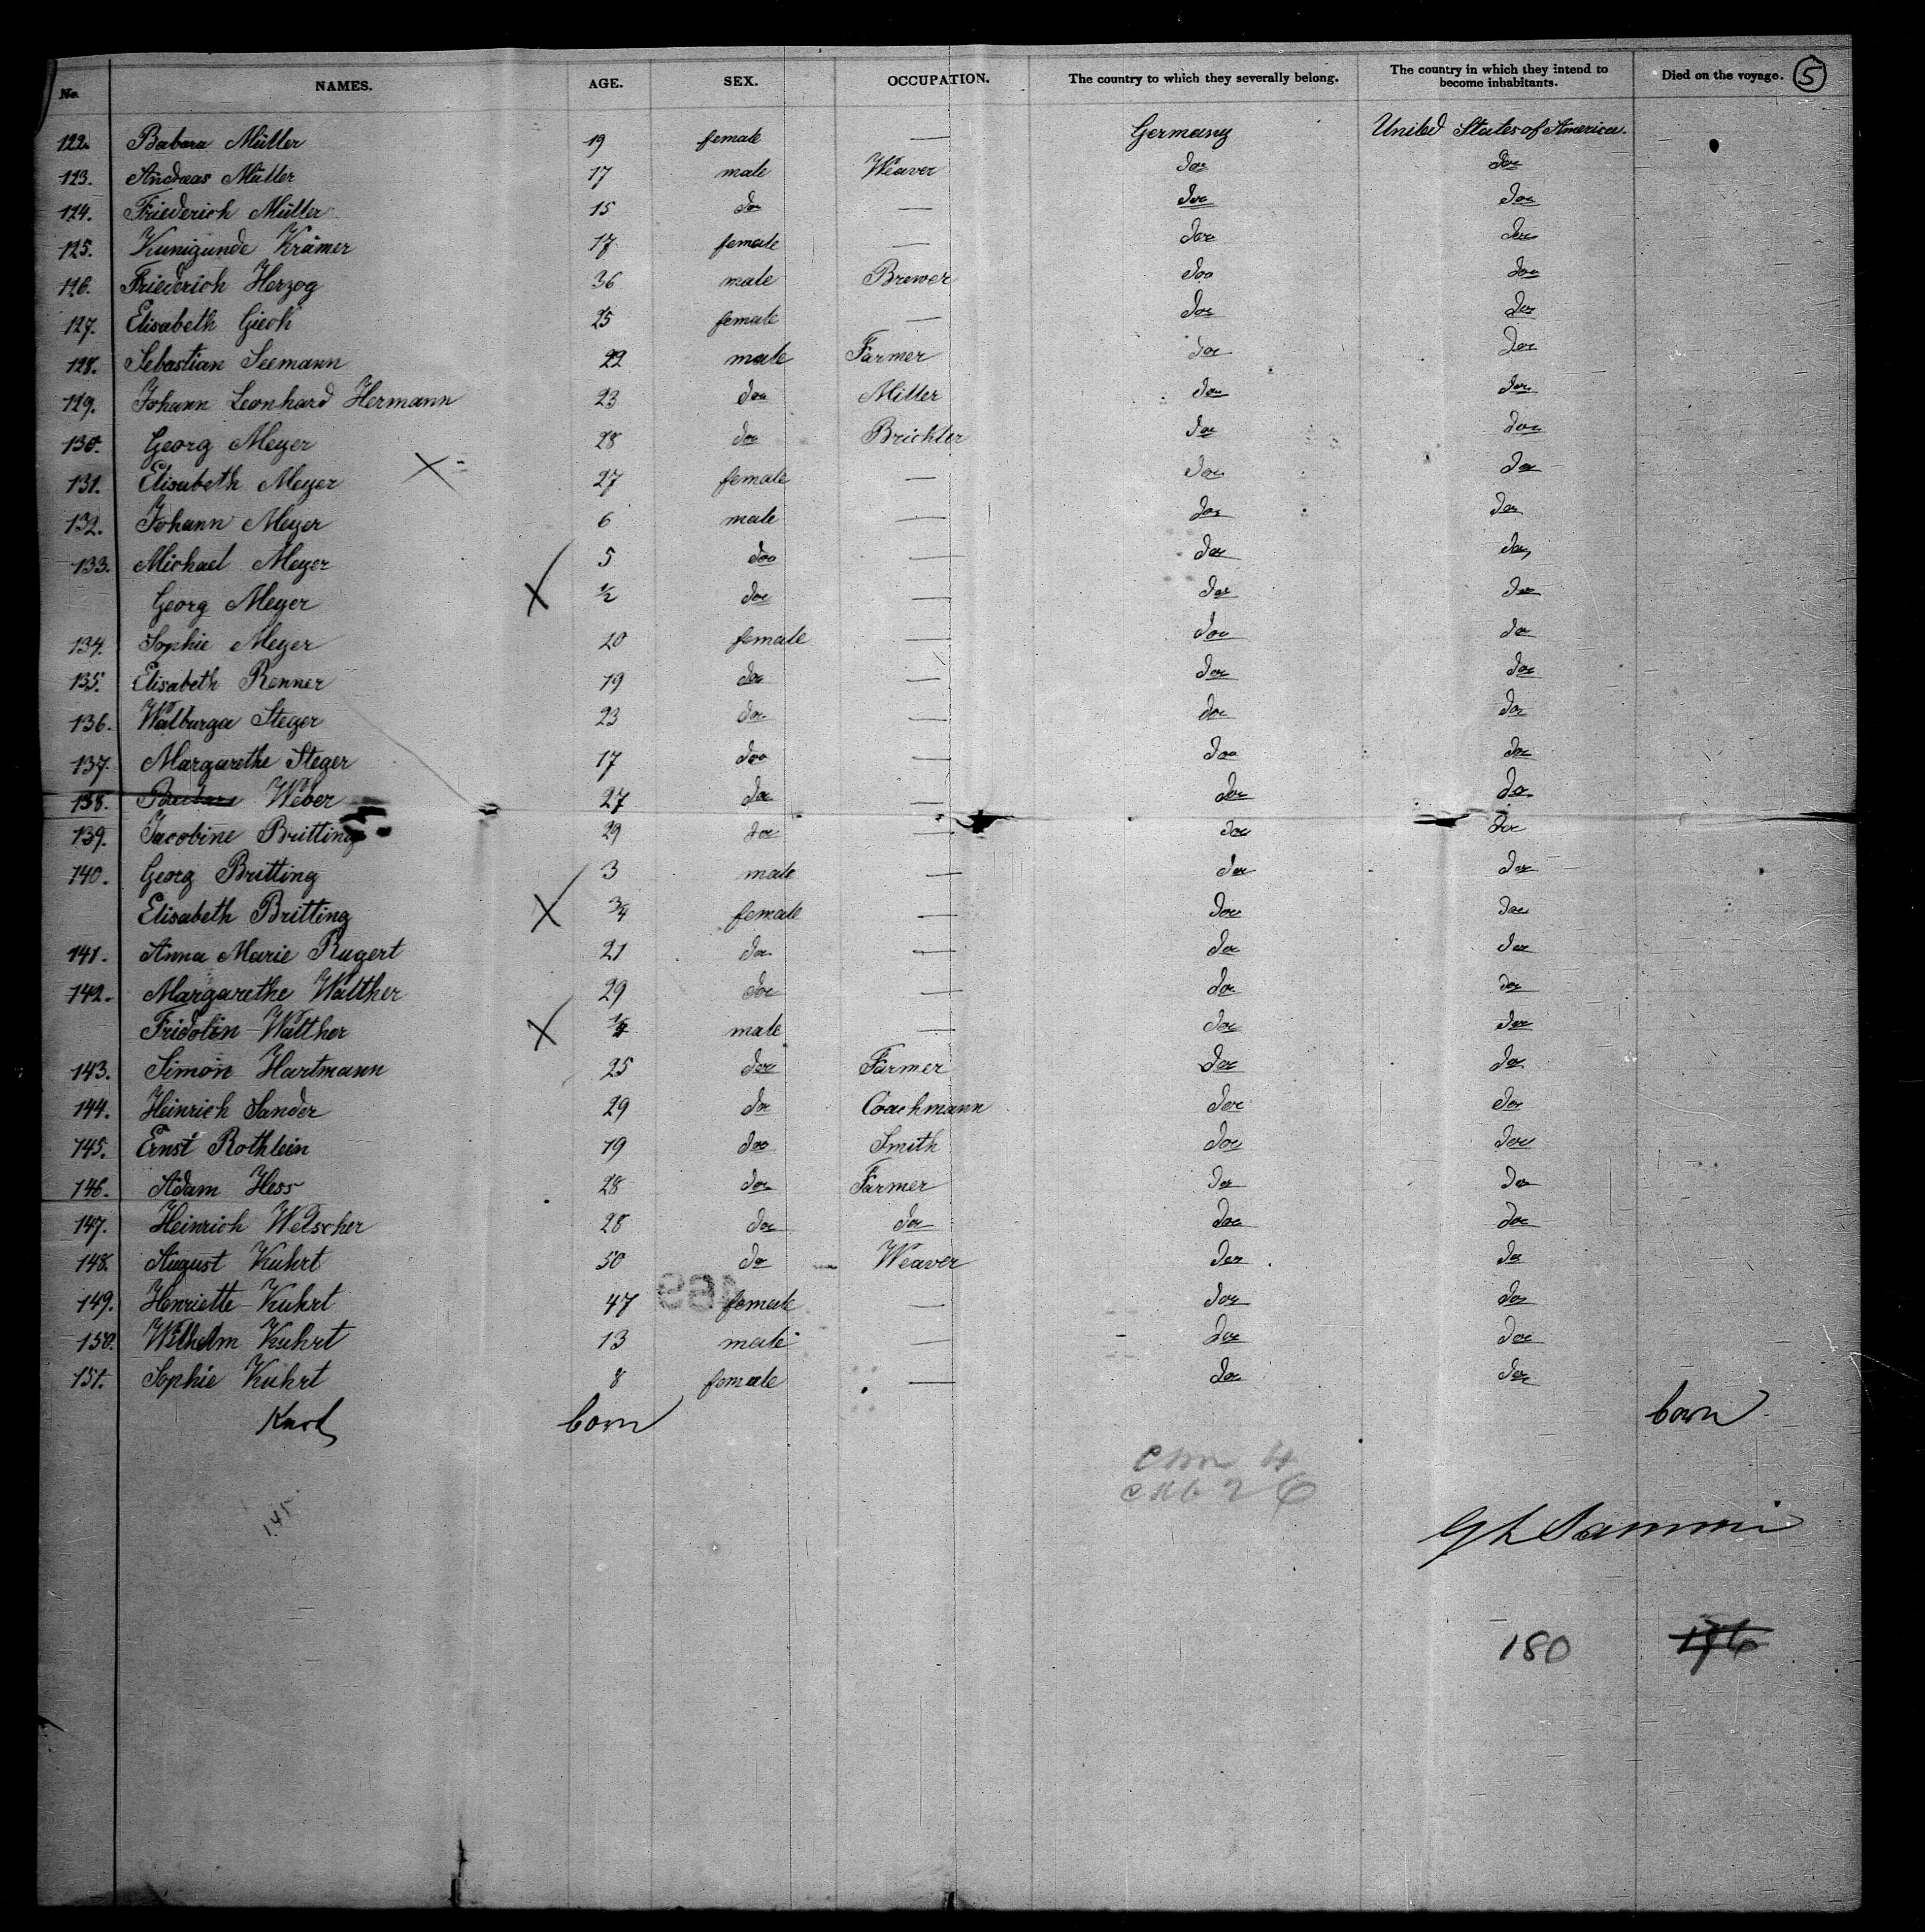 No. NAMES. AGE. SEX. OCCUPATION. The country to which they severally belong. The country in which they intend to become inhabitants. Died on the voyage. 5
122. Babara Müller 19 female — Germany United States of America.
123. Andreas Müller 17 male Weaver do do
124. Friederich Müller 15 do — do do
125. Kunigunde Krämer 17 female — do do
126. Friederich Herzog 36 male Brewer do do
127. Elisabeth Giech 25 female — do do
128. Sebastian Seemann 22 male Farmer do do
129. Johann Leonhard Hermann 23 do Miller do do
130. Georg Meyer 28 do Brickler do do
131. Elisabeth Meyer X 27 female — do do
132. Johann Meyer 6 male — do do
133. Michael Meyer 5 do — do do
Georg Meyer X 1/2 do — do do
134. Sophie Meyer 20 female — do do
135. Elisabeth Renner 19 do — do do
136. Walburga Steger 23 do — do do
137. Margarethe Steger 17 do — do do
138. Barbara Weber 27 do — do do
139. Jacobine Britting 29 do — do do
140. Georg Britting 3 male — do do
Elisabeth Britting X 3/4 female — do do
141. Anna Marie Rugert 21 do — do do
142. Margarethe Walther 29 do — do do
Fridolin Walther X male — do do
143. Simon Hartmann 25 do Farmer do do
144. Heinrich Sander 29 do Coachmann do do
145. Ernst Rothlein 19 do Smith do do
146. Adam Hess 28 do Farmer do do
147. Heinrich Welscher 28 do do do do
148. August Kuhrt 50 do Weaver do do
149. Henriette Kuhrt 47 female — do do
150. Wilhelm Kuhrt 13 male — do do
151. Sophie Kuhrt 8 female — do do
Karl born born
145
180 176